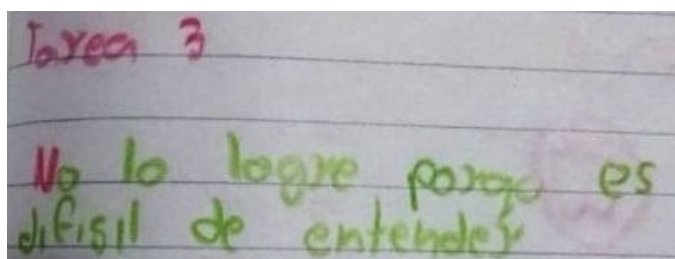 Tarea 3
No lo logre porqe es
difisil de entender